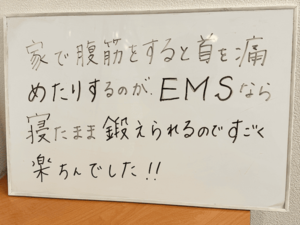 家で腹筋をすると首を痛
めたりするのが、EMSなら
寝たまま鍛えられるのですごく
楽ちんでした!!